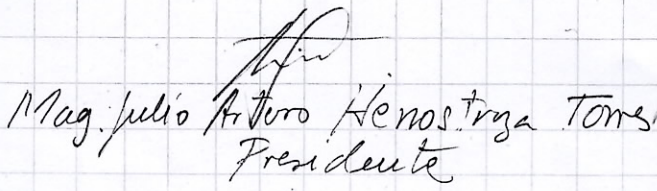 Mag. Julio Arturo Henostroza Torres
Presidente